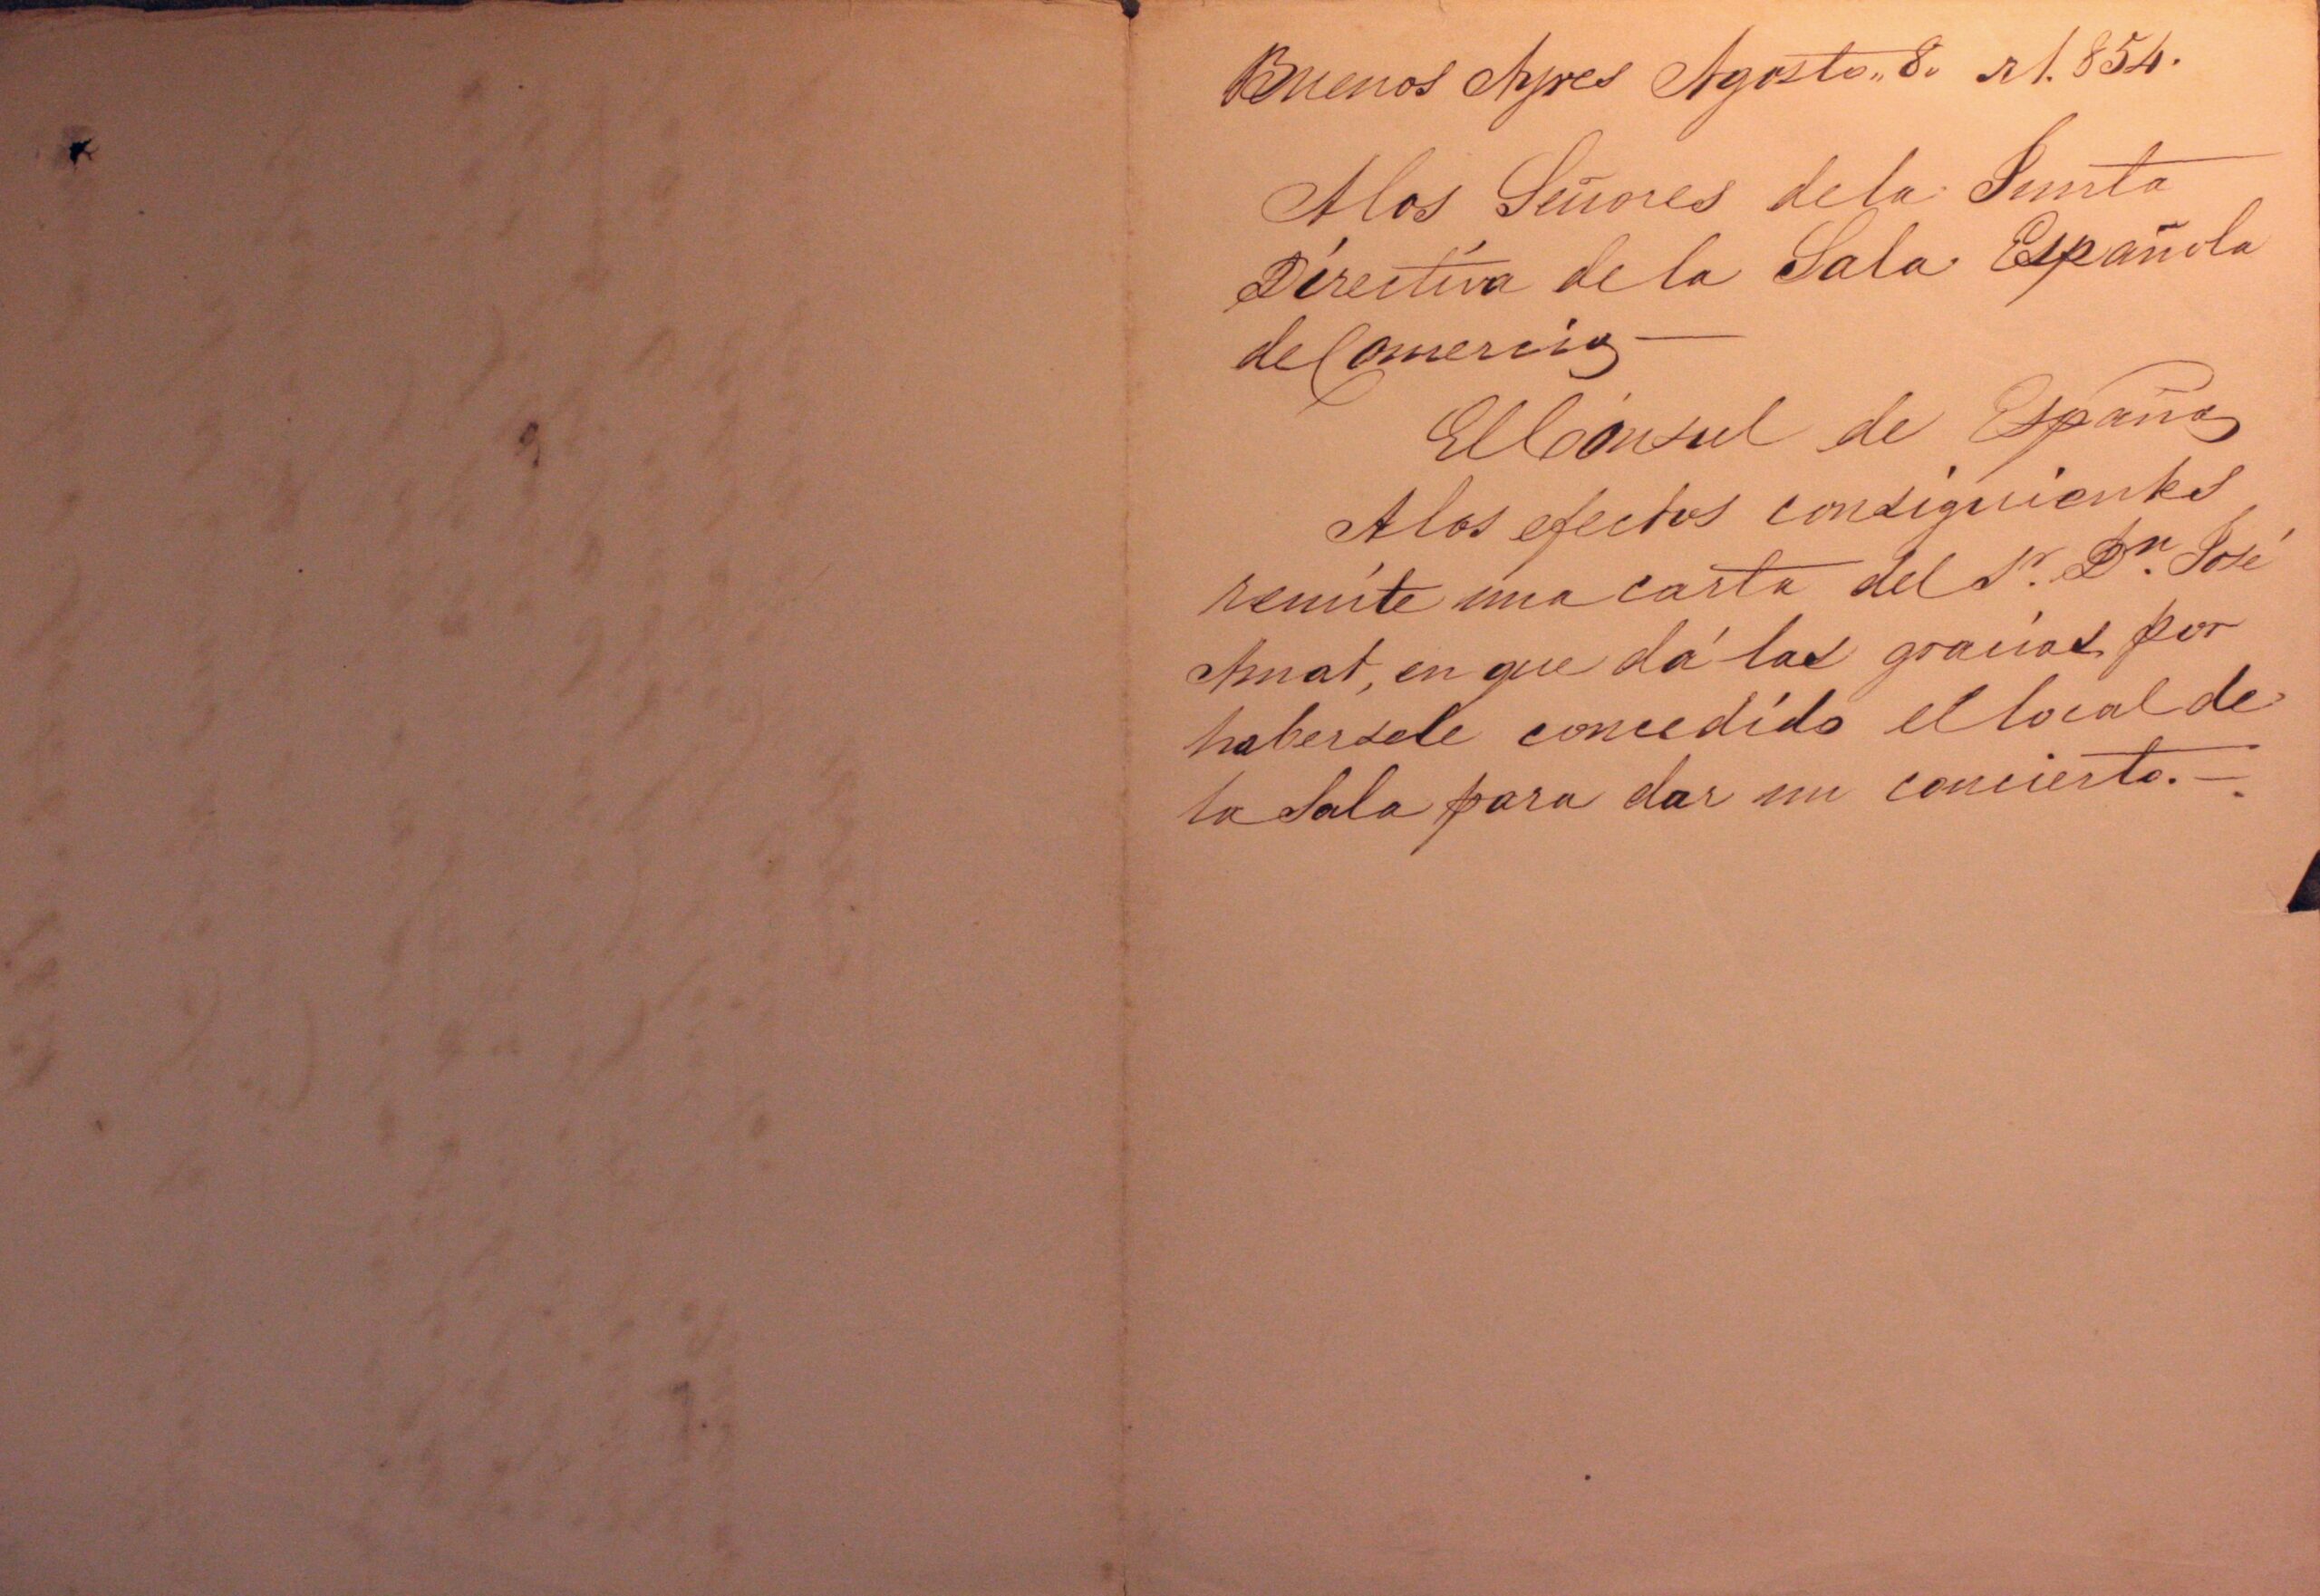 Buenos Ayres Agosto„ 8„ de 1.854.
A los Señores de la Junta
Directiva de la Sala Española
de Comercio —
El Cónsul de España
A los efectos consiguientes
remite una carta del Sr. Dn. José
Amat, en que dá las gracias por
habersele concedido el local de
la Sala para dar un concierto. —